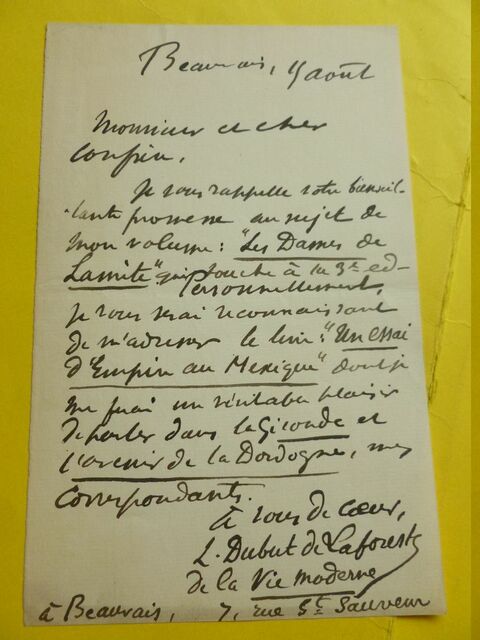 Beauvais, 15 août
Monsieur et cher
Confrère,
Je vous rappelle votre bienveil-
lante promesse au sujet de
mon volume: "Les Dames de
Lamète" qui touche à la 3e ed-
Personnellement,
je vous serai reconnaissant
de m'adresser le livre: "Un essai
d'Empire au Mexique" dont je
me ferai un véritable plaisir
de parler dans la Gironde et
l'avenir de la Dordogne, mes
Correspondants.
à vous de cœur,
L. Dubut de Laforest
de la Vie moderne
à Beauvais, 7, rue St Sauveur